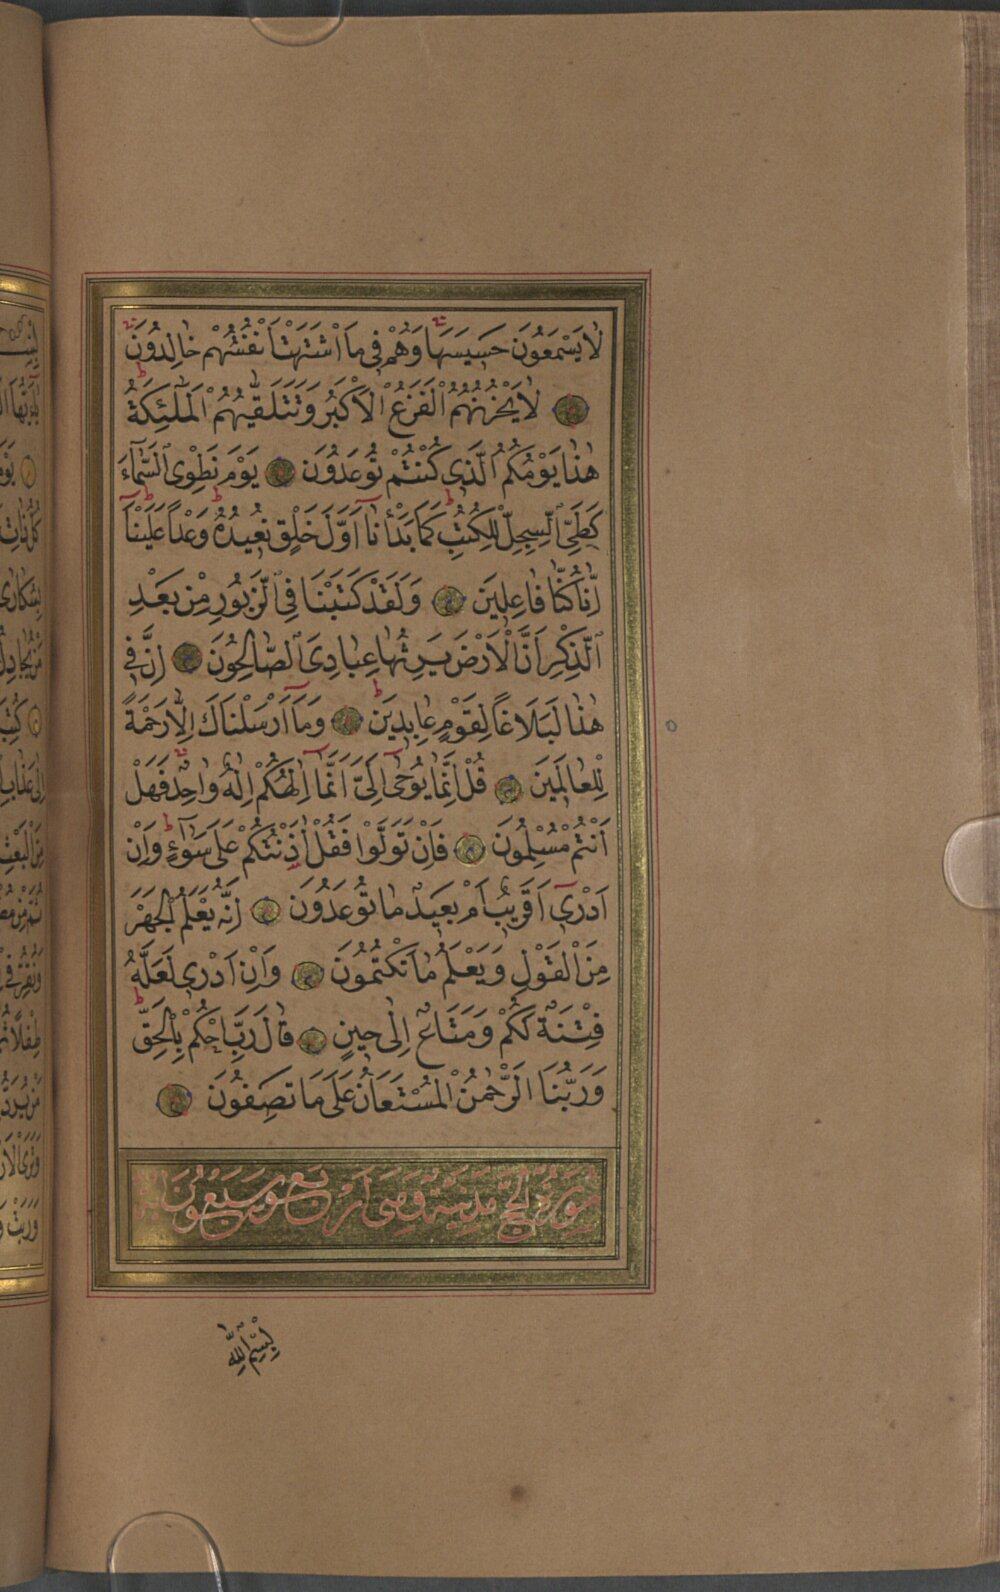 لَا يَسْمَعُونَ حَسِيسَهَا وَهُمْ فِى مَا اشْتَهَتْ اَنْفُسُهُمْ خَالِدُونَ
لَا يَحْزُنُهُمُ الْفَزَعُ الْاَكْبَرُ وَتَتَلَقّٰيهُمُ الْمَلٰٓئِكَةُ
هٰذَا يَوْمُكُمُ الَّذِى كُنْتُمْ تُوعَدُونَ يَوْمَ نَطْوِى السَّمَآءَ
كَطَىِّ السِّجِلِّ لِلْكُتُبِ كَمَا بَدَأْنَآ اَوَّلَ خَلْقٍ نُعِيدُهُ وَعْداً عَلَيْنَآ
اِنَّا كُنَّا فَاعِلِينَ وَلَقَدْ كَتَبْنَا فِى الزَّبُورِ مِنْ بَعْدِ
الذِّكْرِ اَنَّ الْاَرْضَ يَرِثُهَا عِبَادِىَ الصَّالِحُونَ اِنَّ فِى
هٰذَا لَبَلَاغاً لِقَوْمٍ عَابِدِينَ وَمَآ اَرْسَلْنَاكَ اِلَّا رَحْمَةً
لِلْعَالَمِينَ قُلْ اِنَّمَا يُوحٰٓى اِلَىَّ اَنَّمَآ اِلٰهُكُمْ اِلٰهٌ وَاحِدٌ فَهَلْ
اَنْتُمْ مُسْلِمُونَ فَاِنْ تَوَلَّوْا فَقُلْ اٰذَنْتُكُمْ عَلٰى سَوَآءٍ وَاِنْ
اَدْرِىٓ اَقَرِيبٌ اَمْ بَعِيدٌ مَا تُوعَدُونَ اِنَّهُ يَعْلَمُ الْجَهْرَ
مِنَ الْقَوْلِ وَيَعْلَمُ مَا تَكْتُمُونَ وَاِنْ اَدْرِى لَعَلَّهُ
فِتْنَةٌ لَكُمْ وَمَتَاعٌ اِلٰى حِينٍ قَالَ رَبِّ احْكُمْ بِالْحَقِّ
وَرَبُّنَا الرَّحْمٰنُ الْمُسْتَعَانُ عَلٰى مَا تَصِفُونَ
سُورَةُ الْحَجِّ مَدَنِيَّةٌ وَهِىَ اَرْبَعٌ وَسَبْعُونَ
بِسْمِ اللّٰهِ